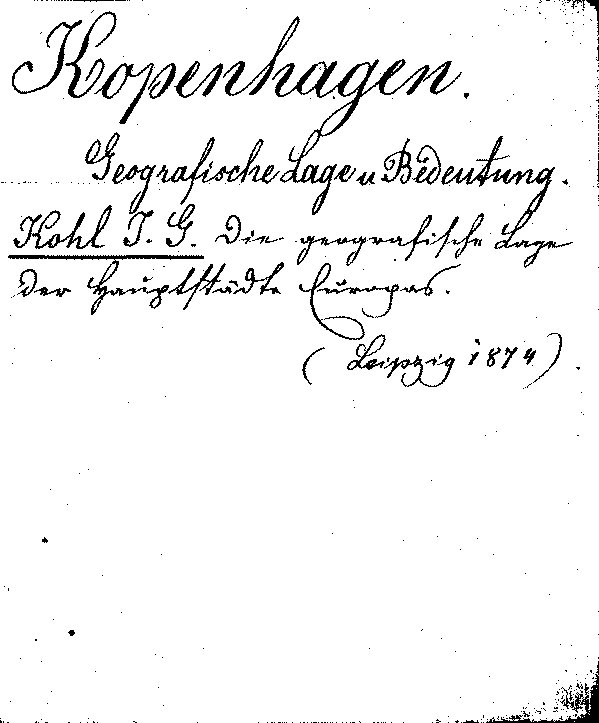 Kopenhagen.
Geografische Lage u Bedeutung.
Kohl J. G. Die geografische Lage
der Hauptstädte Europas.
(Leipzig 1874).